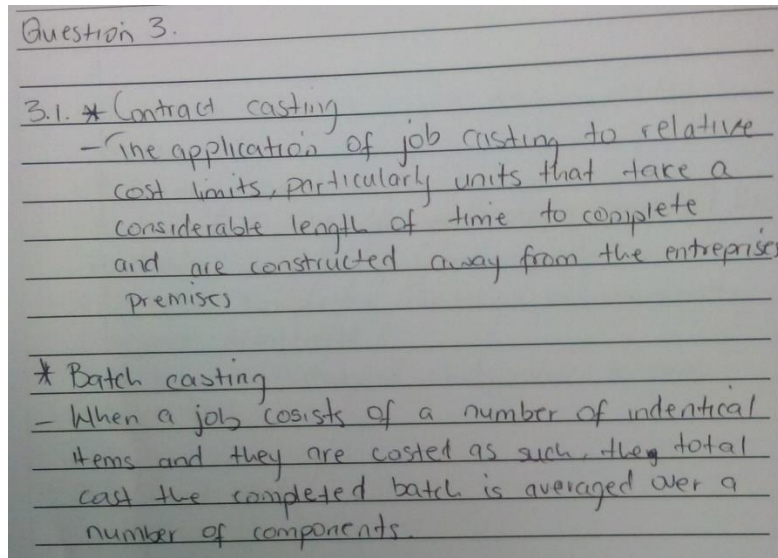 Question 3.
3.1. * Contract casting
- The application of job casting to relative
cost limits, particularly units that take a
considerable length of time to complete
and are constructed away from the entreprises
premises
* Batch casting
- When a job cosists of a number of indentical
items and they are costed as such, they total
cast the completed batch is averaged over a
number of components.